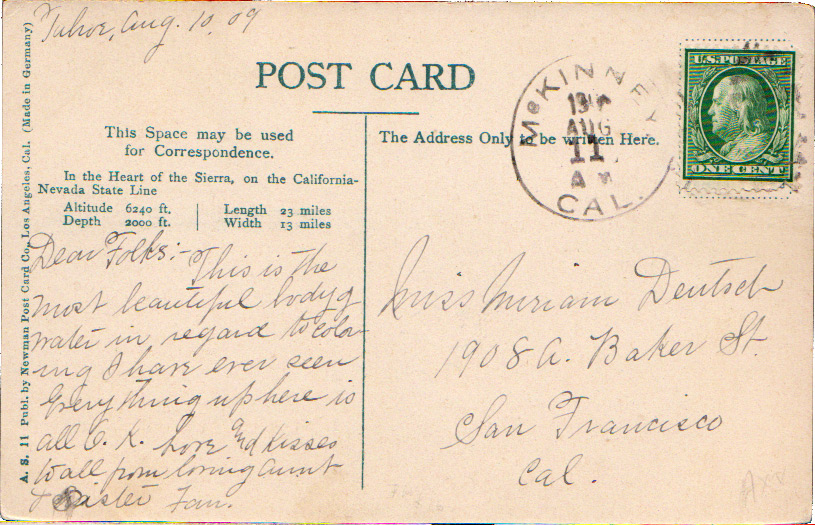 Tahoe, Aug. 10, 09
POST CARD
This Space may be used
for Correspondence.
In the Heart of the Sierra, on the California-
Nevada State Line
Altitude 6240 ft.
Depth 2000 ft.
Length 23 miles
Width 13 miles
Dear Folks:- This is the
most beautiful body of
water in regard to color-
ing I have ever seen
Everything up here is
all O. K. Love and kisses
to all from loving aunt
& sister Fan.
A. S. 11 Publ. by Newman Post Card Co., Los Angeles, Cal. (Made in Germany)
The Address Only to be written Here.
McKINNEY
AUG
11
A M
CAL.
U.S. POSTAGE
ONE CENT
Miss Miriam Deutsch
1908 A. Baker St.
San Francisco
Cal.